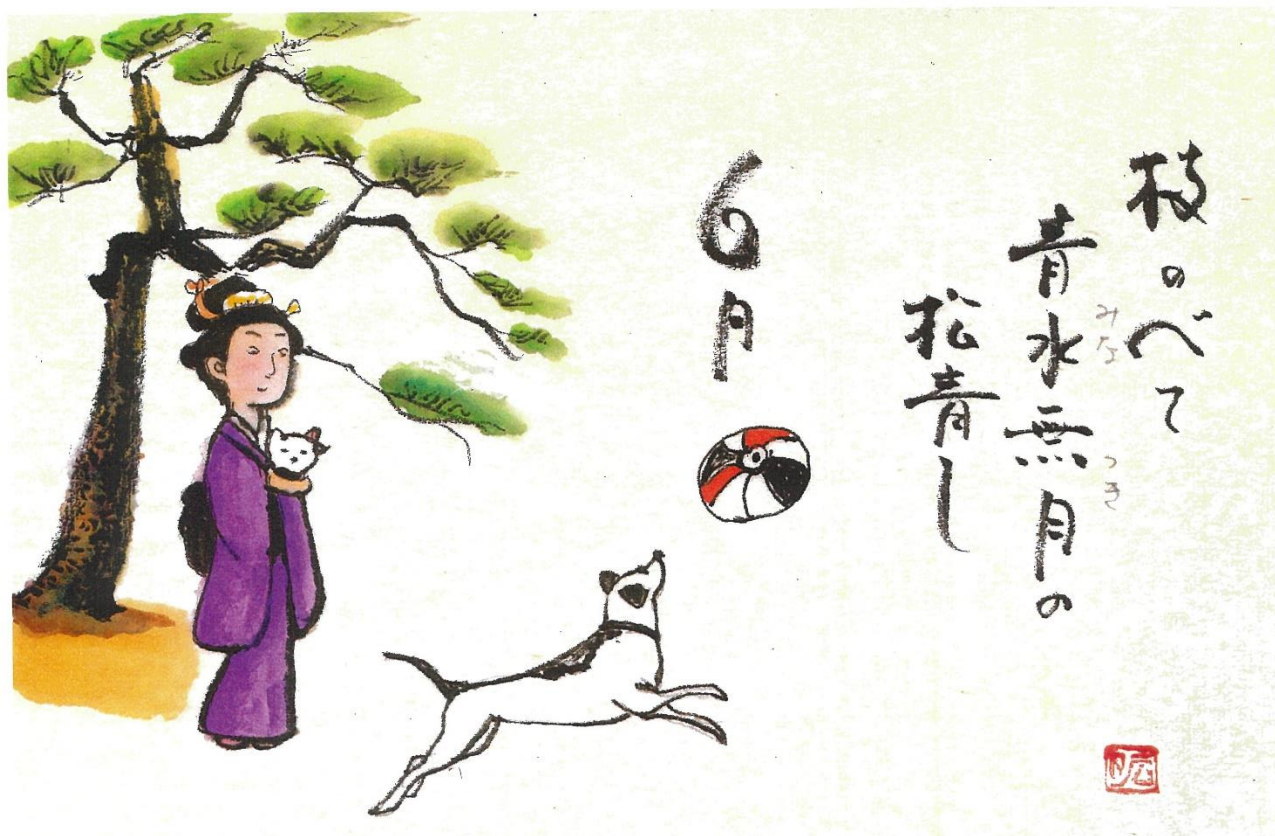 枝のべて
青水無月の
みなつき
松青し
6月